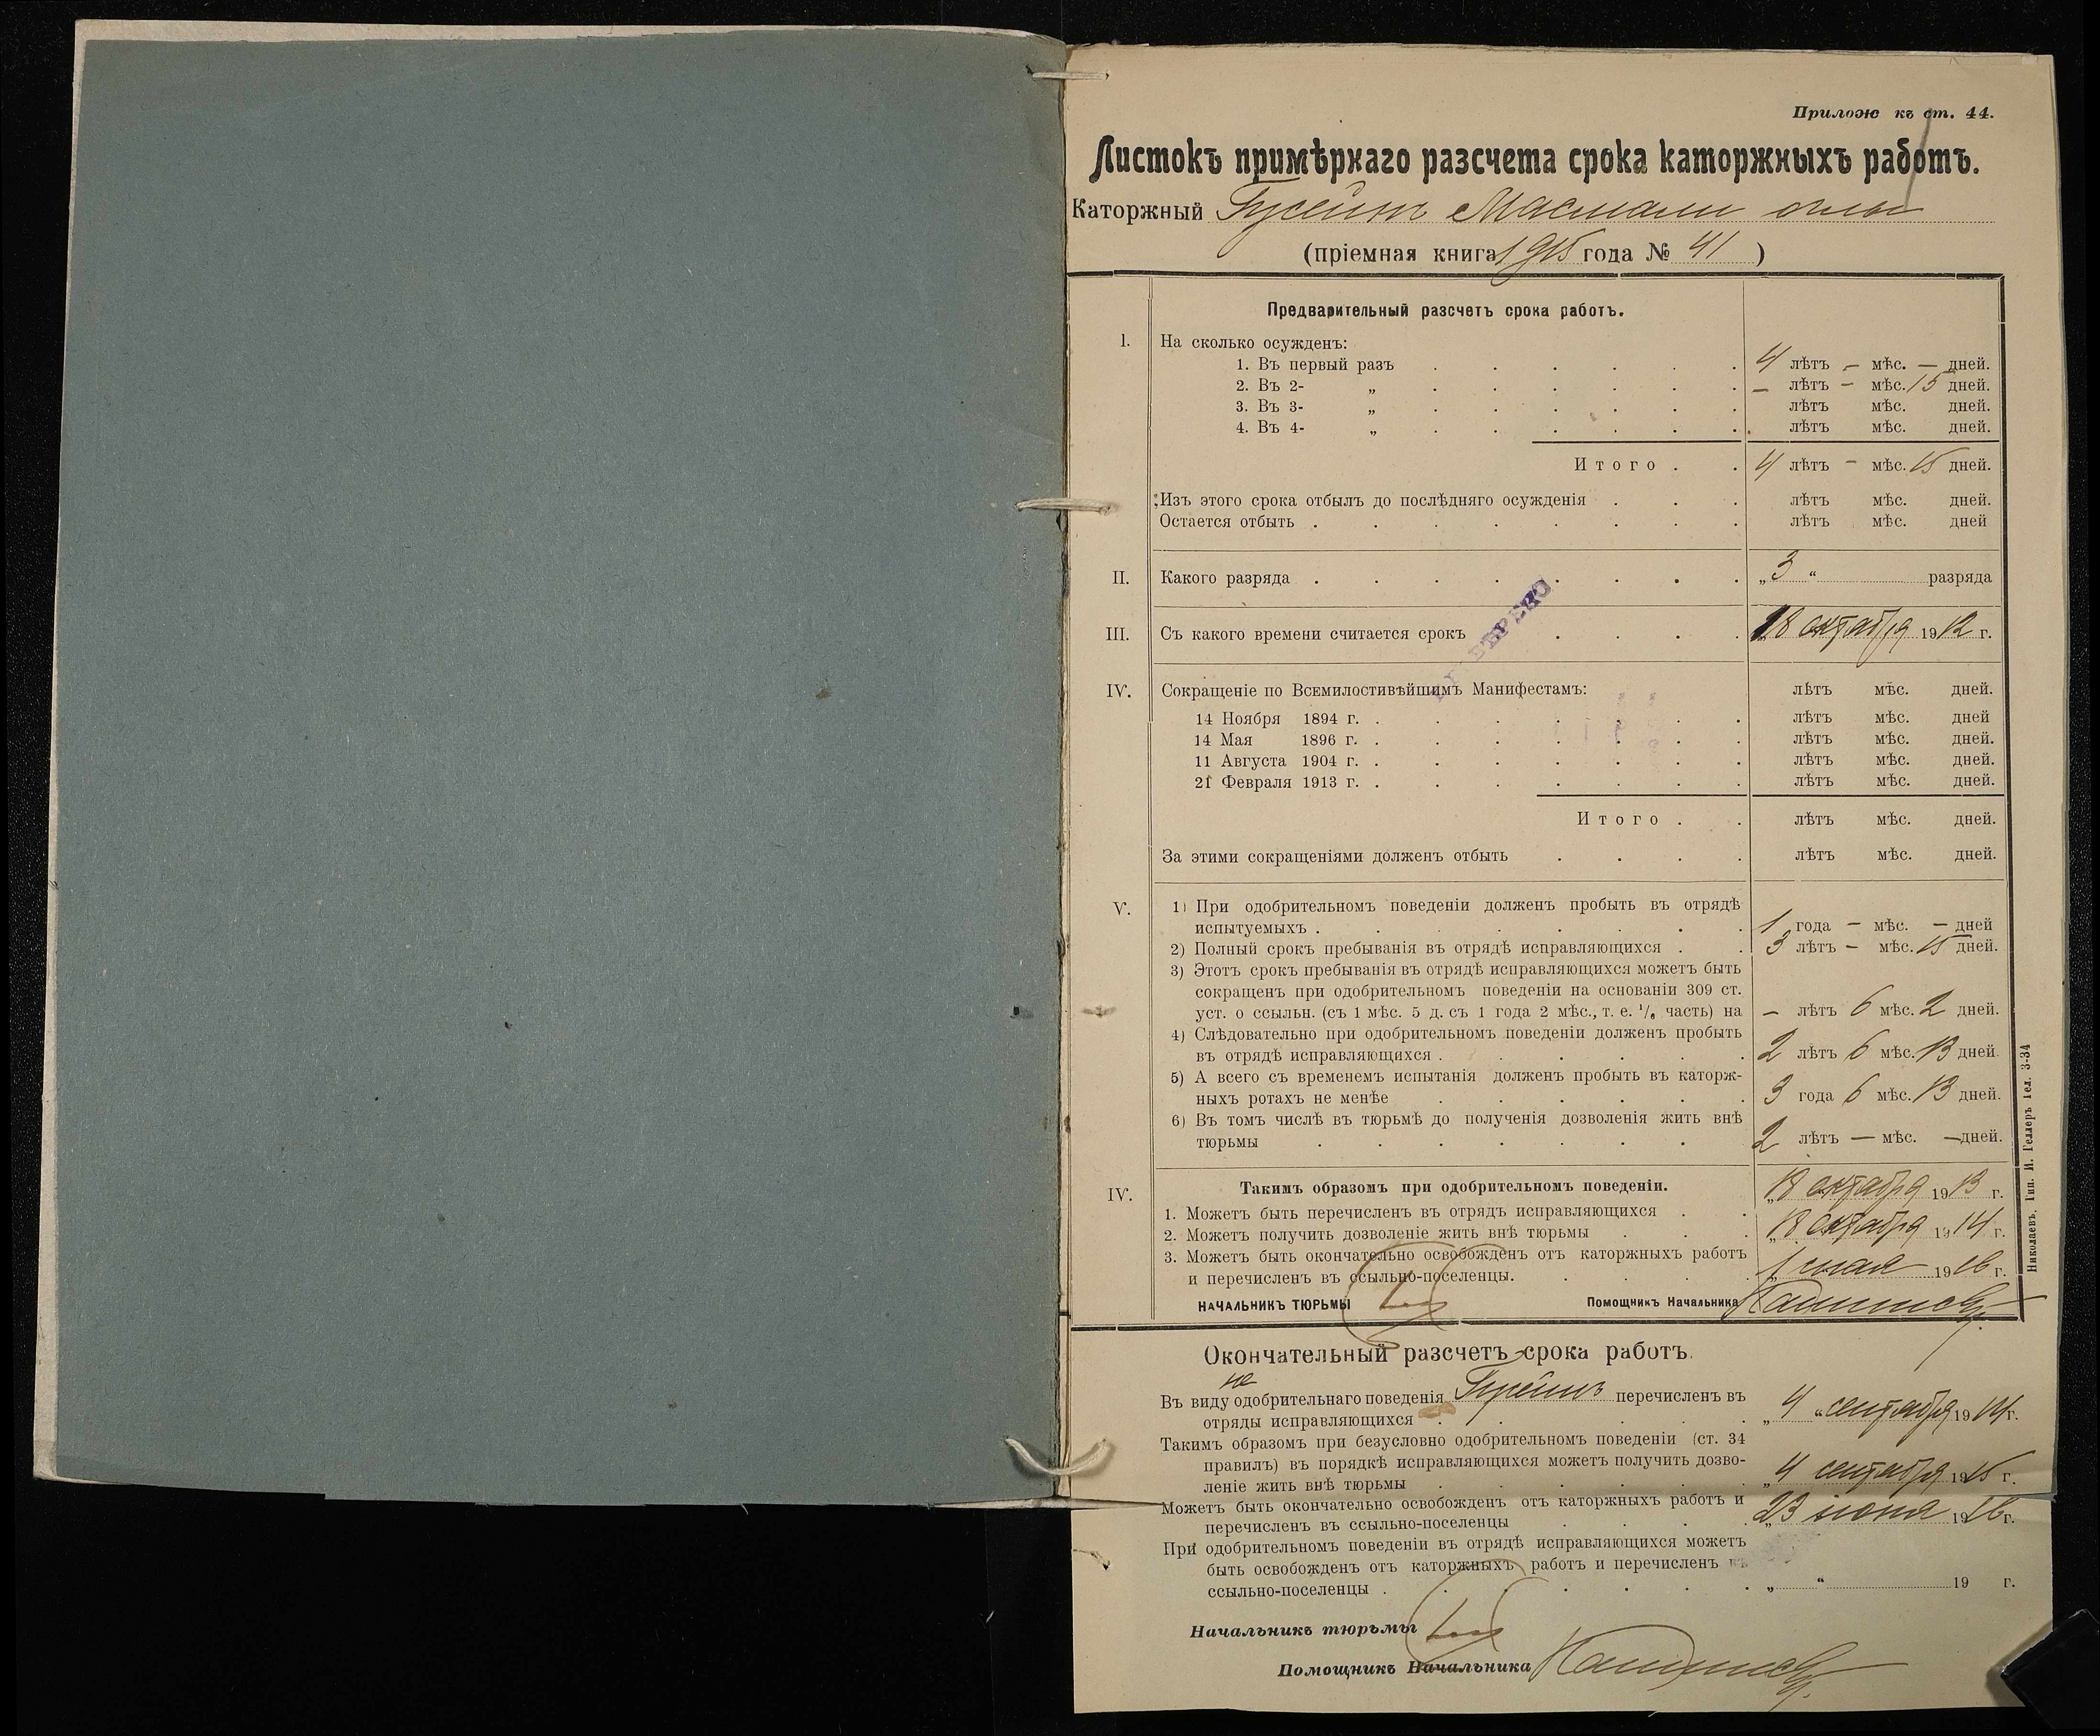 Прилож къ ст. 44.
Листокъ примѣрнаго разсчета срока каторжныхъ работъ.
Каторжный Гусейнъ оглы
(пріемная книга 1915 года № 41 )
Предварительный разсчетъ срока работъ.
I. На сколько осужденъ:
1. Въ первый разъ . . . . . . 4 лѣтъ - мѣс. - дней.
2. Въ 2- „ . . . . . . - лѣтъ - мѣс. 15 дней.
3. Въ 3- „ . . . . . . лѣтъ мѣс. дней.
4. Въ 4- „ . . . . . . лѣтъ мѣс. дней.
Итого . . 4 лѣтъ - мѣс. 15 дней.
Изъ этого срока отбылъ до послѣдняго осужденія . . . лѣтъ мѣс. дней.
Остается отбыть . . . . . . . . лѣтъ мѣс. дней
II. Какого разряда . . . . . . . . „ 3 “ разряда
III. Съ какого времени считается срокъ . . . . 18 октября 1912 г.
IV. Сокращеніе по Всемилостивѣйшимъ Манифестамъ: лѣтъ мѣс. дней.
14 Ноября 1894 г. . . . . . . . лѣтъ мѣс. дней
14 Мая 1896 г. . . . . . . . лѣтъ мѣс. дней.
11 Августа 1904 г. . . . . . . . лѣтъ мѣс. дней.
21 Февраля 1913 г. . . . . . . . лѣтъ мѣс. дней.
Итого . . лѣтъ мѣс. дней.
За этими сокращеніями долженъ отбыть . . . . лѣтъ мѣс. дней.
V. 1) При одобрительномъ поведеніи долженъ пробыть въ отрядѣ
испытуемыхъ . . . . . . . . 1 года - мѣс. - дней
2) Полный срокъ пребыванія въ отрядѣ исправляющихся . . 3 лѣтъ - мѣс. 15 дней.
3) Этотъ срокъ пребыванія въ отрядѣ исправляющихся можетъ быть
сокращенъ при одобрительномъ поведеніи на основаніи 309 ст.
уст. о ссыльн. (съ 1 мѣс. 5 д. съ 1 года 2 мѣс., т. е. 1/6 часть) на - лѣтъ 6 мѣс. 2 дней.
4) Слѣдовательно при одобрительномъ поведеніи долженъ пробыть
въ отрядѣ исправляющихся . . . . . . 2 лѣтъ 6 мѣс. 13 дней.
5) А всего съ временемъ испытанія долженъ пробыть въ каторж-
ныхъ ротахъ не менѣе . . . . . . 3 года 6 мѣс. 13 дней.
6) Въ томъ числѣ въ тюрьмѣ до полученія дозволенія жить внѣ
тюрьмы . . . . . . . 2 лѣтъ - мѣс. - дней.
IV. Такимъ образомъ при одобрительномъ поведеніи.
1. Можетъ быть перечисленъ въ отрядъ исправляющихся . . „18 октября 1913 г.
2. Можетъ получить дозволеніе жить внѣ тюрьмы . . . „18 октября 1914 г.
3. Можетъ быть окончательно освобожденъ отъ каторжныхъ работъ
и перечисленъ въ ссыльно-поселенцы. . . . . „1 мая 1916 г.
НАЧАЛЬНИКЪ ТЮРЬМЫ Помощникъ Начальника
Николаевъ, Тип. И. Геллеръ Тел. 3-34
Окончательный разсчетъ срока работъ.
не
Въ виду одобрительнаго поведенія Гусейнъ перечисленъ въ
отряды исправляющихся . . . . . . „ 4 “ сентября 1914 г.
Такимъ образомъ при безусловно одобрительномъ поведеніи (ст. 34
правилъ) въ порядкѣ исправляющихся можетъ получить дозво-
леніе жить внѣ тюрьмы . . . . . . „ 4 сентября 1915 г.
Можетъ быть окончательно освобожденъ отъ каторжныхъ работъ и
перечисленъ въ ссыльно-поселенцы . . . . „23 іюня 1916 г.
При одобрительномъ поведеніи въ отрядѣ исправляющихся можетъ
быть освобожденъ отъ каторжныхъ работъ и перечисленъ въ
ссыльно-поселенцы . . . . . . . „ “ 19 г.
Начальникъ тюрьмы
Помощникъ Начальника